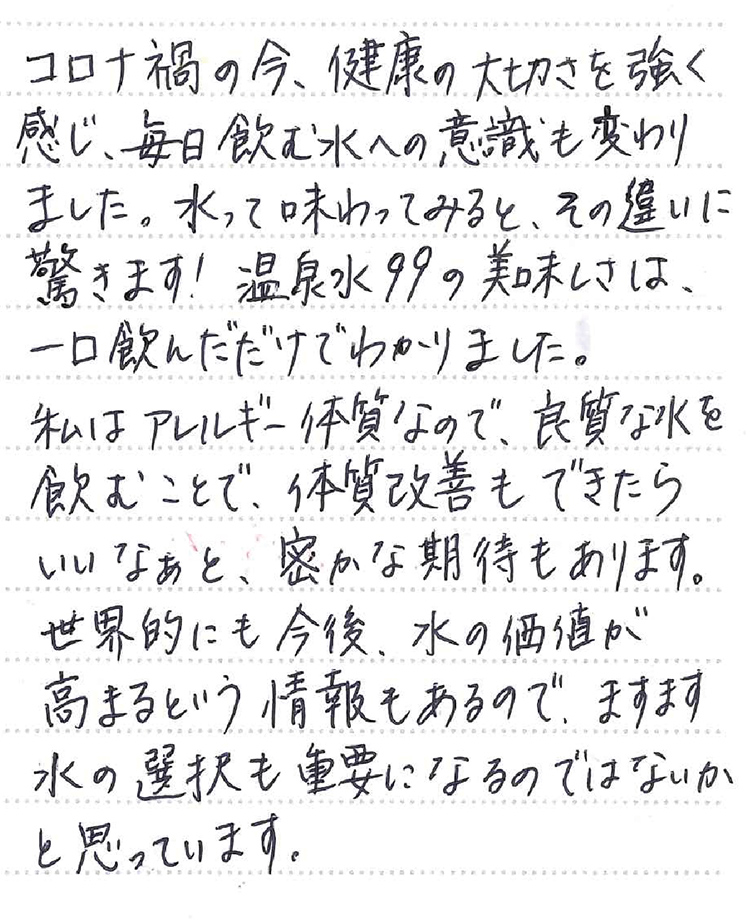 コロナ禍の今、健康の大切さを強く
感じ、毎日飲む水への意識も変わり
ました。水って味わってみると、その違いに
驚きます！温泉水99の美味しさは、
一口飲んだだけでわかりました。
私はアレルギー体質なので、良質な水を
飲むことで、体質改善もできたら
いいなぁと、密かな期待もあります。
世界的にも今後、水の価値が
高まるという情報もあるので、ますます
水の選択も重要になるのではないか
と思っています。